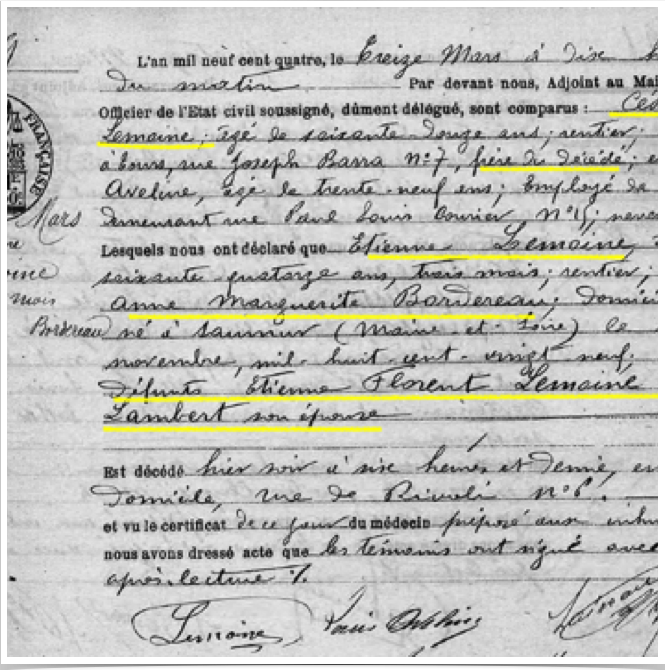 L'an mil neuf cent quatre, le treize Mars à dix
du matin Par devant nous, Adjoint au Mai
Officier de l'Etat civil soussigné, dûment délégué, sont comparus : Cés
Lemaine; âgé de soixante douze ans; rentier;
à Tours, rue Joseph Barra N° 7, frère du décédé; e
Aveline, âgé de trente-neuf ans; Employé de
demeurant rue Paul Louis Courier N° 15; neve
Lesquels nous ont déclaré que Etienne Lemaine,
soixante quatorze ans, trois mois; rentier;
Anne Marguerite Bordereau; domici
né à Saumur (Maine-et-Loire) le
novembre, mil-huit-cent-vingt neuf.
défunts Etienne Florent Lemaine
Lambert son épouse
Est décédé hier soir à six heures et demie, en
domicile, rue de Rivoli N° 6.
et vu le certificat de ce jour du médecin préposé aux inhu
nous avons dressé acte que les témoins ont signé avec
après lecture %.
Lemaine
FRANÇAISE
Mars
mois
Bordereau